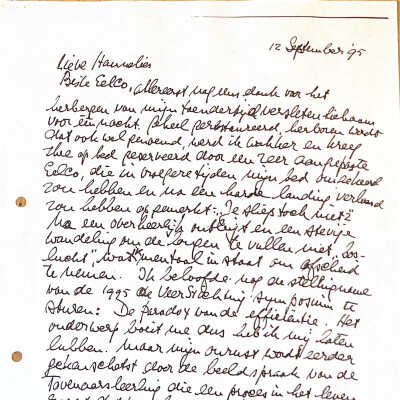 12 September '95
Lieve Hannelies
Beste Eelco, allereerst nog eens dank voor het
herbergen van mijn toendertijd versleten lichaam
voor een nacht. Geheel gerestaureerd, herboren wordt
dat ook wel genoemd, werd ik wakker en kreeg
thee op bed geserveerd door een zeer aangepaste
Eelco, die in vroegere tijden mijn bed omgekeerd
zou hebben en na een harde landing verbaasd
zou hebben opgemerkt: "Je sliep toch niet?"
Na een overheerlijk ontbijt en een stevige
wandeling om de longen te vullen met "bos-
lucht", was ik mentaal in staat om afscheid
te nemen. Ik beloofde nog de stellingname
van de 1995 de Veer Stichting symposium te
sturen: De paradox van de efficiëntie. Het
onderwerp boeit me dus heb ik mij laten
lubben. Maar mijn onrust wordt eerder
gekenschetst door de beeldspraak van de
Tovenaarsleerling die een proces in het leven